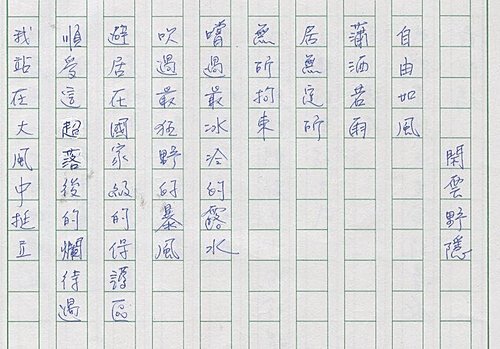 閑雲野隱
自由如風
瀟洒若雨
居無定所
無所拘束
嚐過最冰冷的露水
吹過最狂野的暴風
避居在國家級的保護區
順受這超落後的爛待遇
我站在大風中挺立